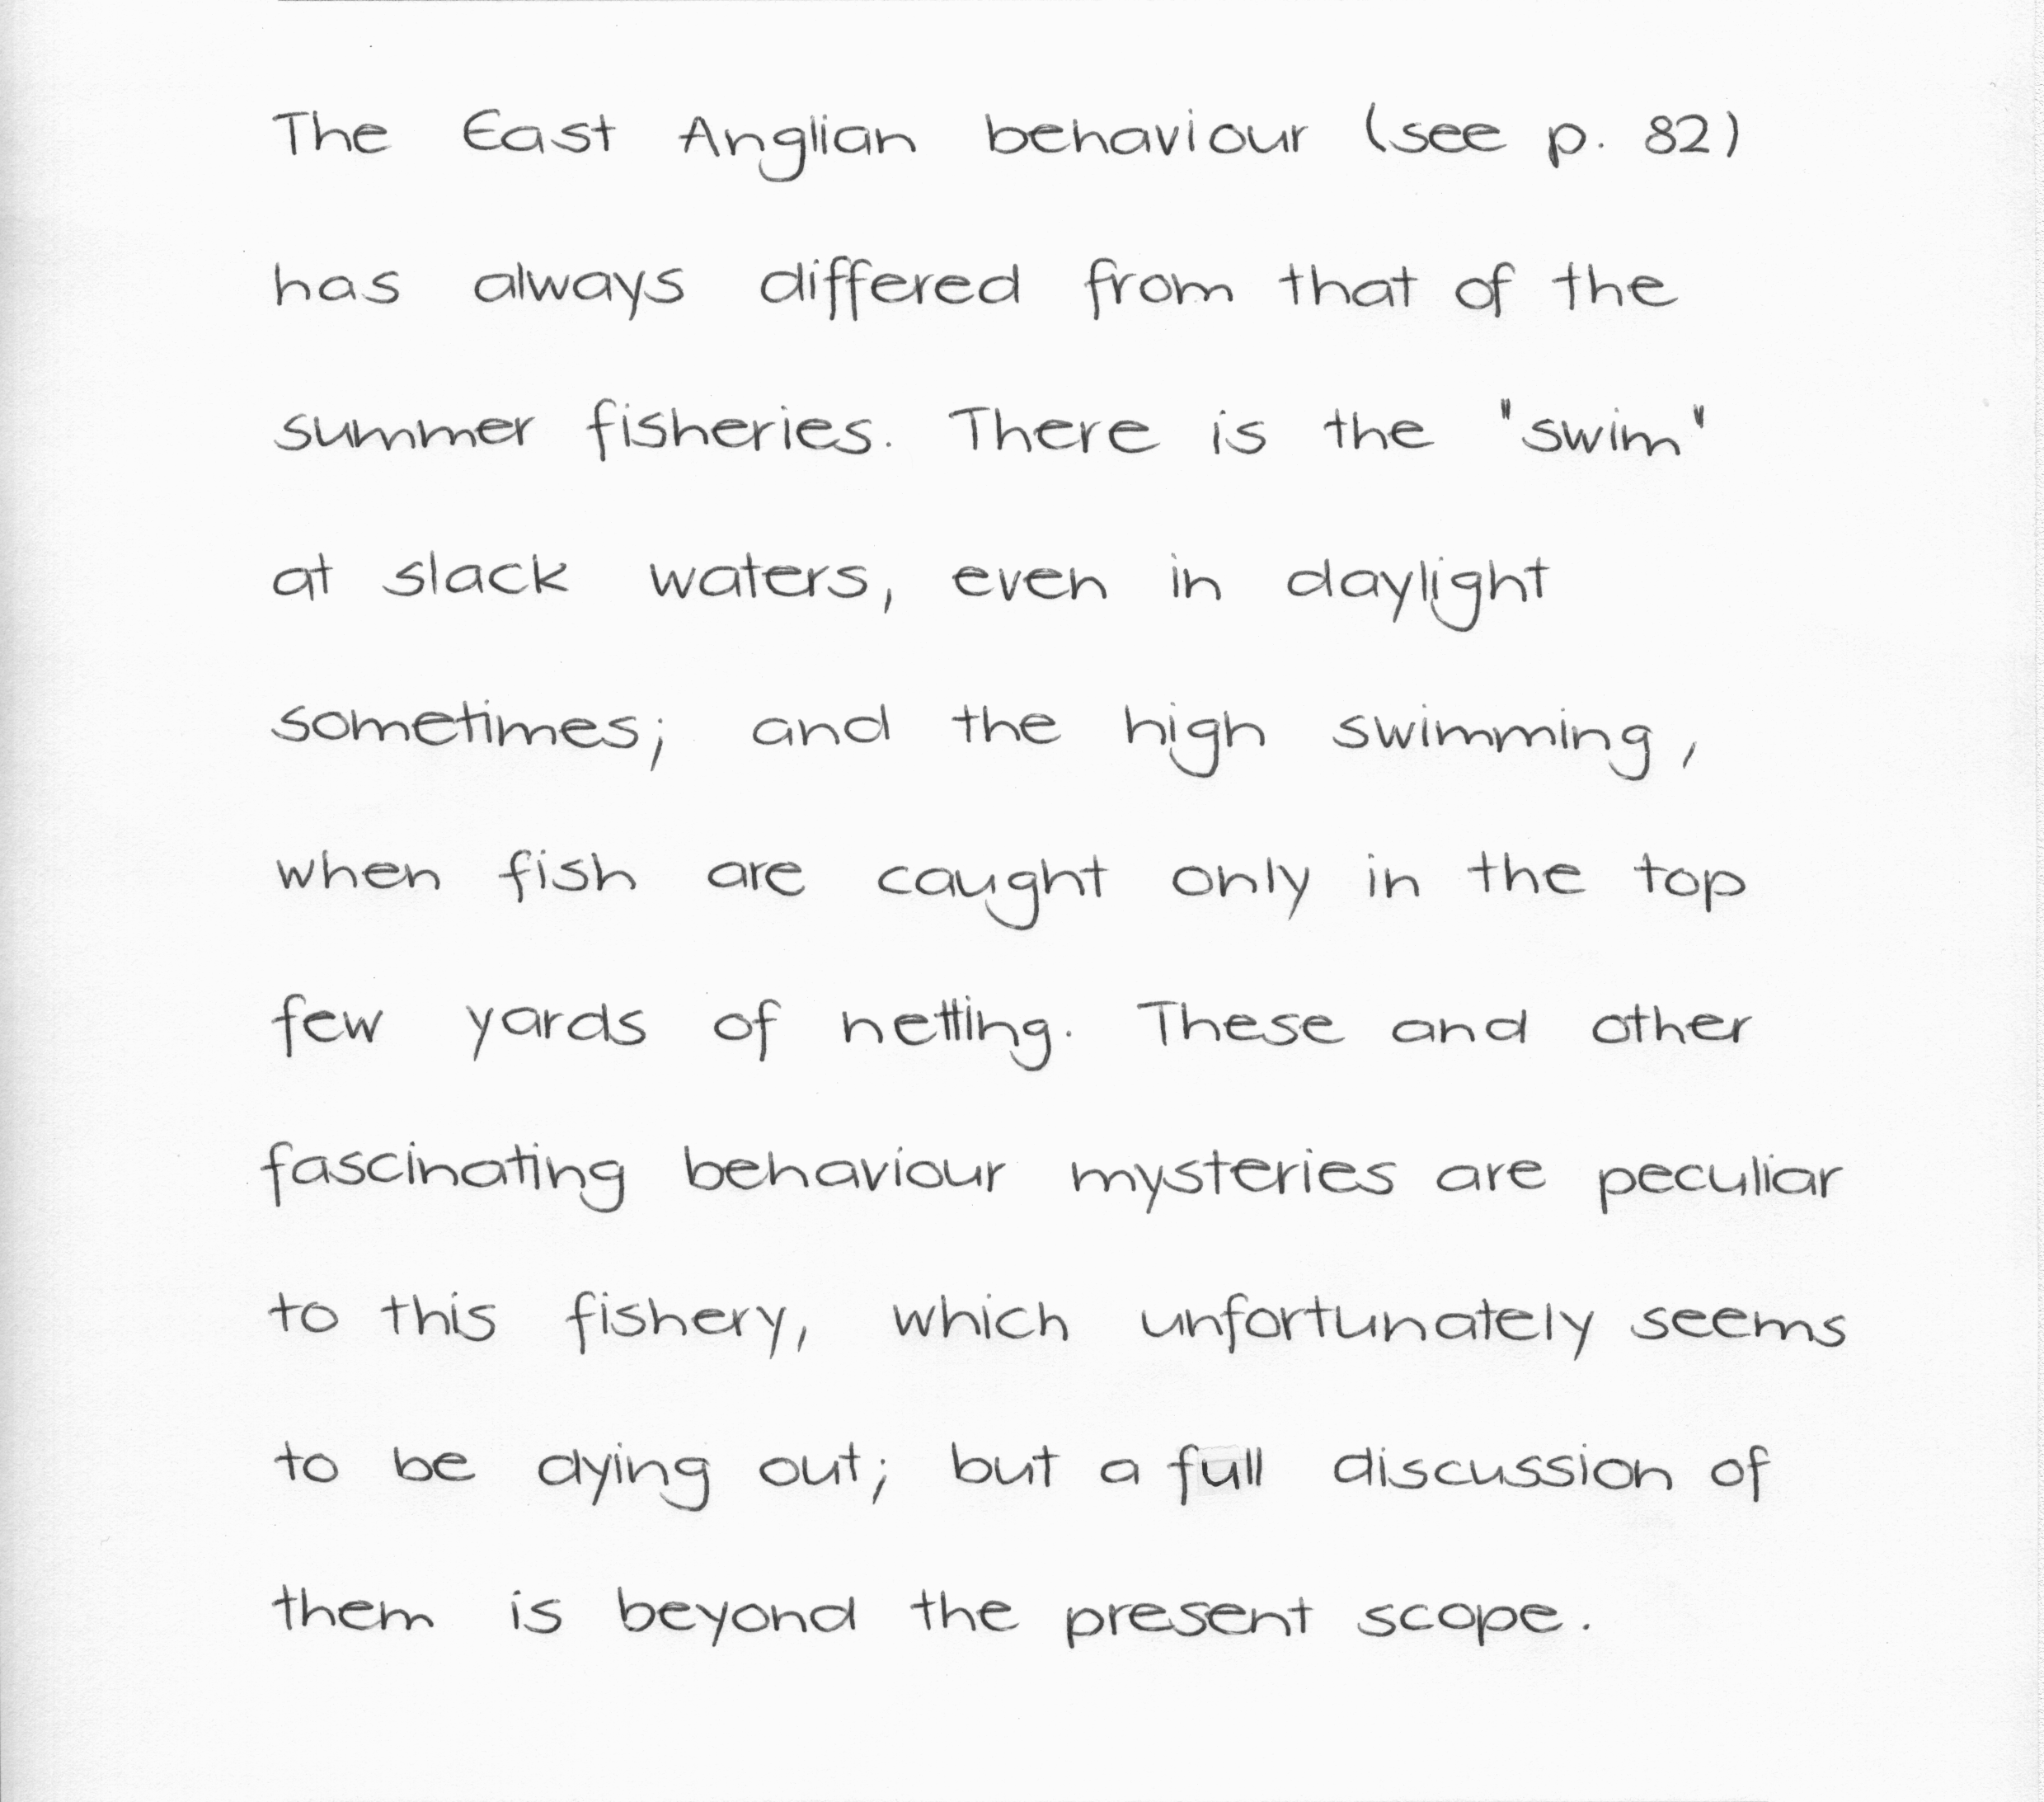 The East Anglian behaviour (see p. 82)
has always differed from that of the
summer fisheries. There is the "swim"
at slack waters, even in daylight
sometimes; and the high swimming,
when fish are caught only in the top
few yards of netting. These and other
fascinating behaviour mysteries are peculiar
to this fishery, which unfortunately seems
to be dying out; but a full discussion of
them is beyond the present scope.